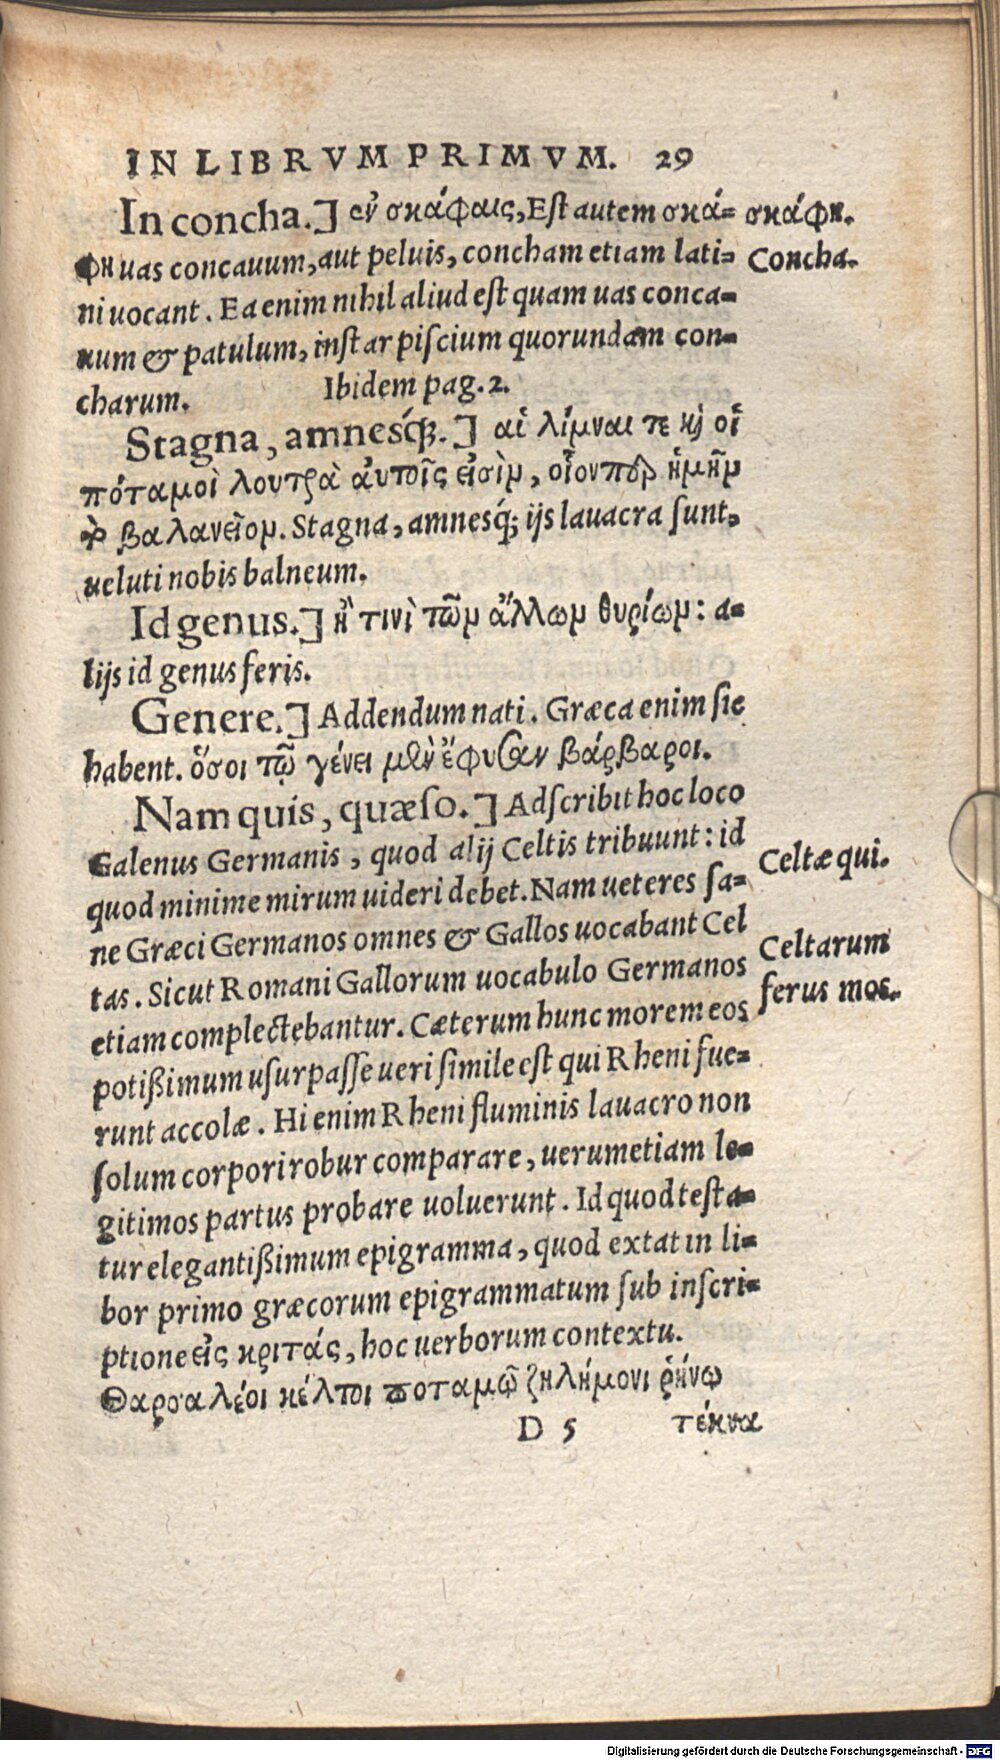 IN LIBRVM PRIMVM. 29
In concha.] ἐν σκάφαις, Eſt autem σκά-
φη uas concauum, aut peluis, concham etiam lati-
ni uocant. Ea enim nihil aliud eſt quam uas conca-
uum & patulum, inſtar piſcium quorundam con-
charum.
Ibidem pag. 2.
Stagna, amnesq́;.] αἱ λίμναι τε κὶ οἱ
πόταμοὶ λουτρὰ αὐτοῖς εἰσὶν, οἷονπερ ἡμῖν
τὸ βαλανεῖον. Stagna, amnesq́; ijs lauacra ſunt,
ueluti nobis balneum.
Id genus.] ἤ τινὶ τῶν ἄλλων θυρίων: a-
lijs id genus feris.
Genere.] Addendum nati. Græca enim ſic
habent. ὅσοι τῷ γένει μὲν ἔφυσαν βάρβαροι.
Nam quis, quæſo.] Adſcribit hoc loco
Galenus Germanis, quod alij Celtis tribuunt: id
quod minime mirum uideri debet. Nam ueteres ſa-
ne Græci Germanos omnes & Gallos uocabant Cel
tas. Sicut Romani Gallorum uocabulo Germanos
etiam complectebantur. Cæterum hunc morem eos
potißimum uſurpaſſe ueri ſimile eſt qui Rheni fue-
runt accolæ. Hi enim Rheni fluminis lauacro non
ſolum corpori robur comparare, uerumetiam le-
gitimos partus probare uoluerunt. Id quod teſta-
tur elegantißimum epigramma, quod extat in li-
bor primo græcorum epigrammatum ſub inſcri-
ptione εἰς κριτάς, hoc uerborum contextu.
Θαρσαλέοι κέλτοι ποταμῷ ζηλήμονι ῥήνῳ
D 5 τέκνα
σκάφη.
Concha.
Celtæ qui.
Celtarum
ferus mos.
Digitalisierung gefördert durch die Deutsche Forschungsgemeinschaft - DFG